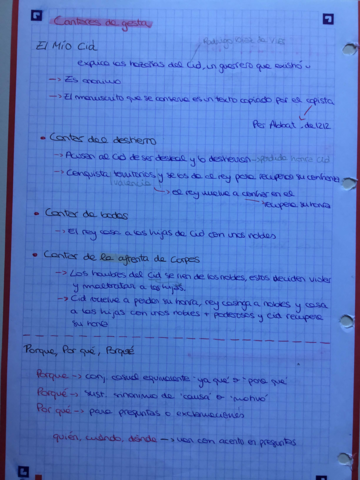 Cantares de gesta
El Mío Cid
explica las hazañas del Cid, un guerrero que existió
→ Es anónimo
→ El manuscrito que se conserva es un texto copiado por el copista
Per Abbat, de 1212
• Cantar del destierro
→ Acusan al Cid de ser desleal y lo destierran → pérdida honra Cid
→ Conquista territorios y se los da al rey para recuperar su confianza
→ el rey vuelve a confiar en él
recupera su honra
• Cantar de bodas
→ El rey casa a las hijas de Cid con unos nobles
• Cantar de la afrenta de Corpes
→ Los hombres del Cid se ríen de los nobles, estos deciden violar
y maltratar a las hijas.
→ Cid vuelve a perder su honra, rey castiga a nobles y casa
a las hijas con unos nobles + poderosos y Cid recupera
su honra
Porque, Por qué, Porqué
Porque → conj. causal equivalente "ya que" o "para que"
Porqué → sust. sinónimo de "causa" o "motivo"
Por qué → para preguntas o exclamaciones
quién, cuándo, dónde → van con acento en preguntas